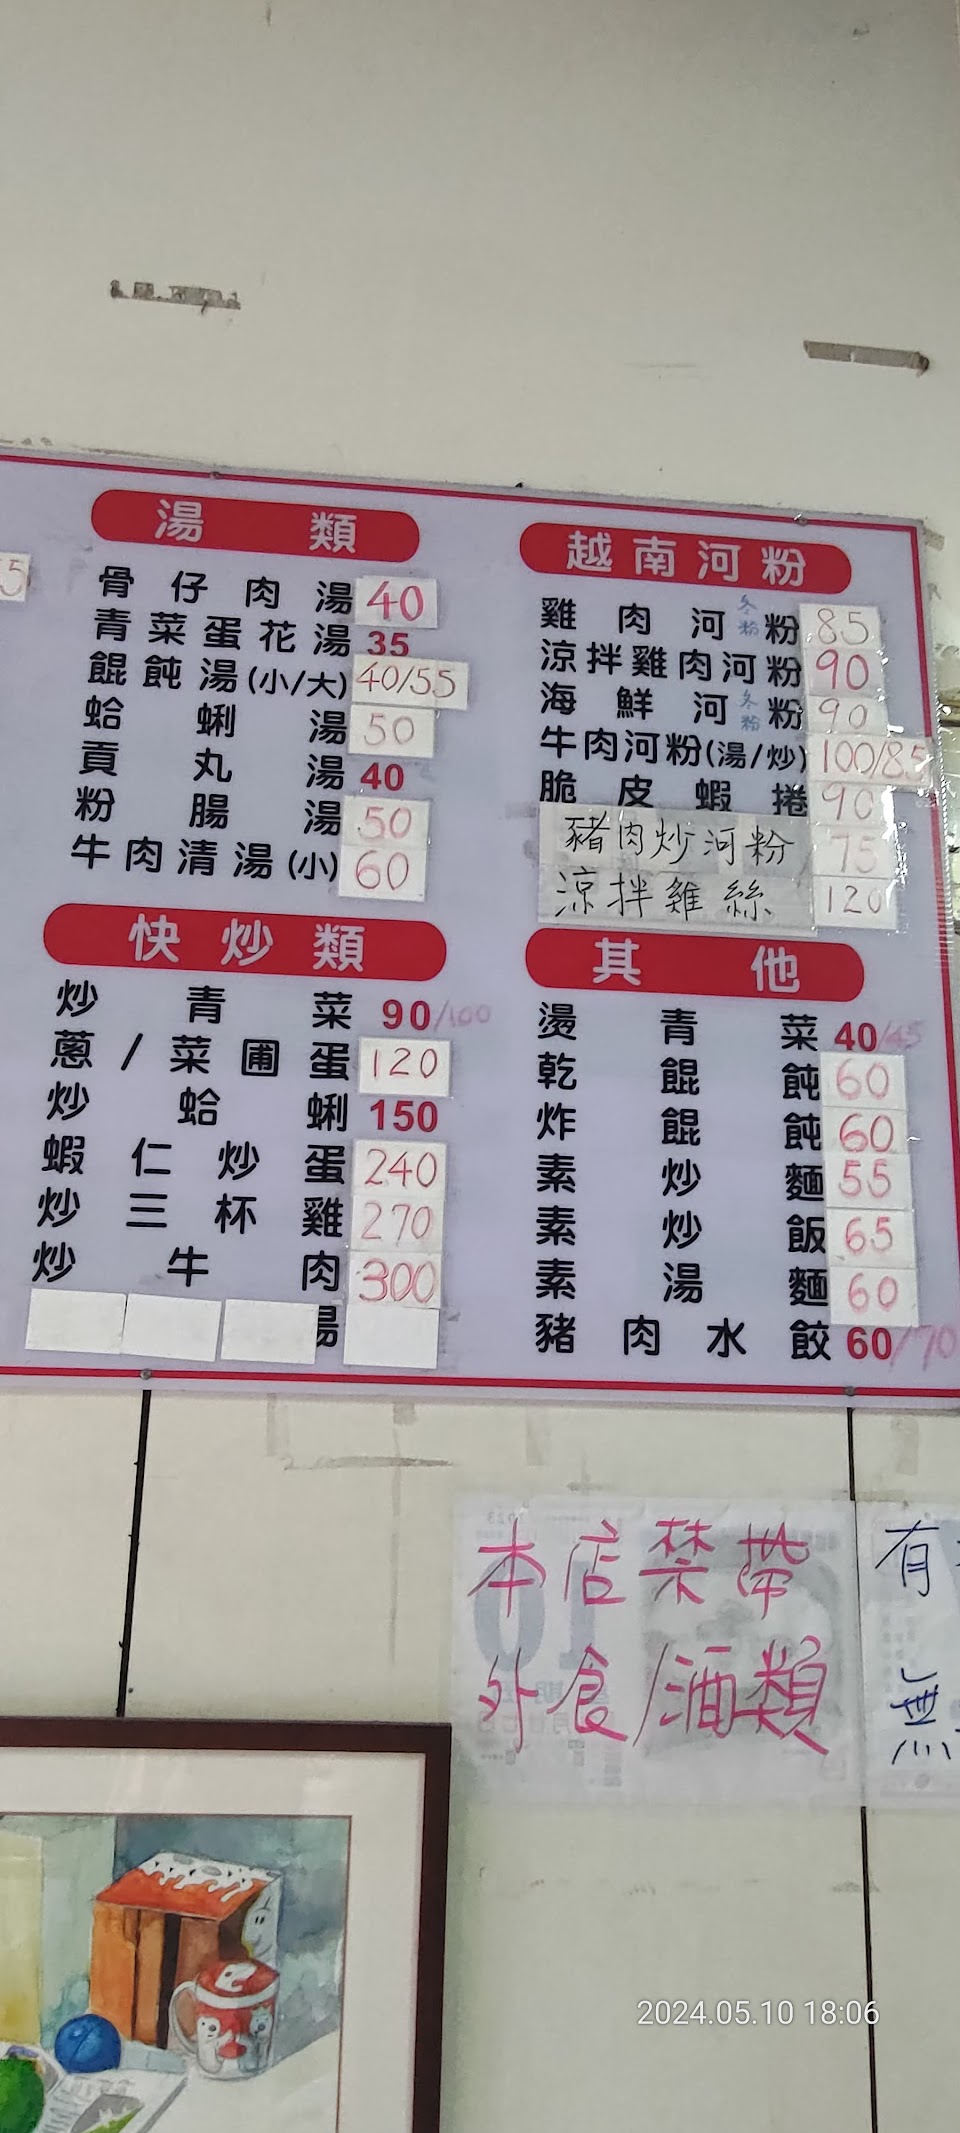 湯類
骨仔肉湯 40
青菜蛋花湯 35
餛飩湯(小/大) 40/55
蛤蜊湯 50
貢丸湯 40
粉腸湯 50
牛肉清湯(小) 60
快炒類
炒青菜 90/100
蔥/菜圃蛋 120
炒蛤蜊 150
蝦仁炒蛋 240
炒三杯雞 270
炒牛肉 300
湯
5
越南河粉
雞肉河粉 冬粉 85
涼拌雞肉河粉 90
海鮮河粉 冬粉 90
牛肉河粉(湯/炒) 100/85
脆皮蝦捲 90
豬肉炒河粉 75
涼拌雞絲 120
其他
燙青菜 40/45
乾餛飩 60
炸餛飩 60
素炒麵 55
素炒飯 65
素湯麵 60
豬肉水餃 60/70
本店禁帶
外食/酒類
有
無
2024.05.10 18:06